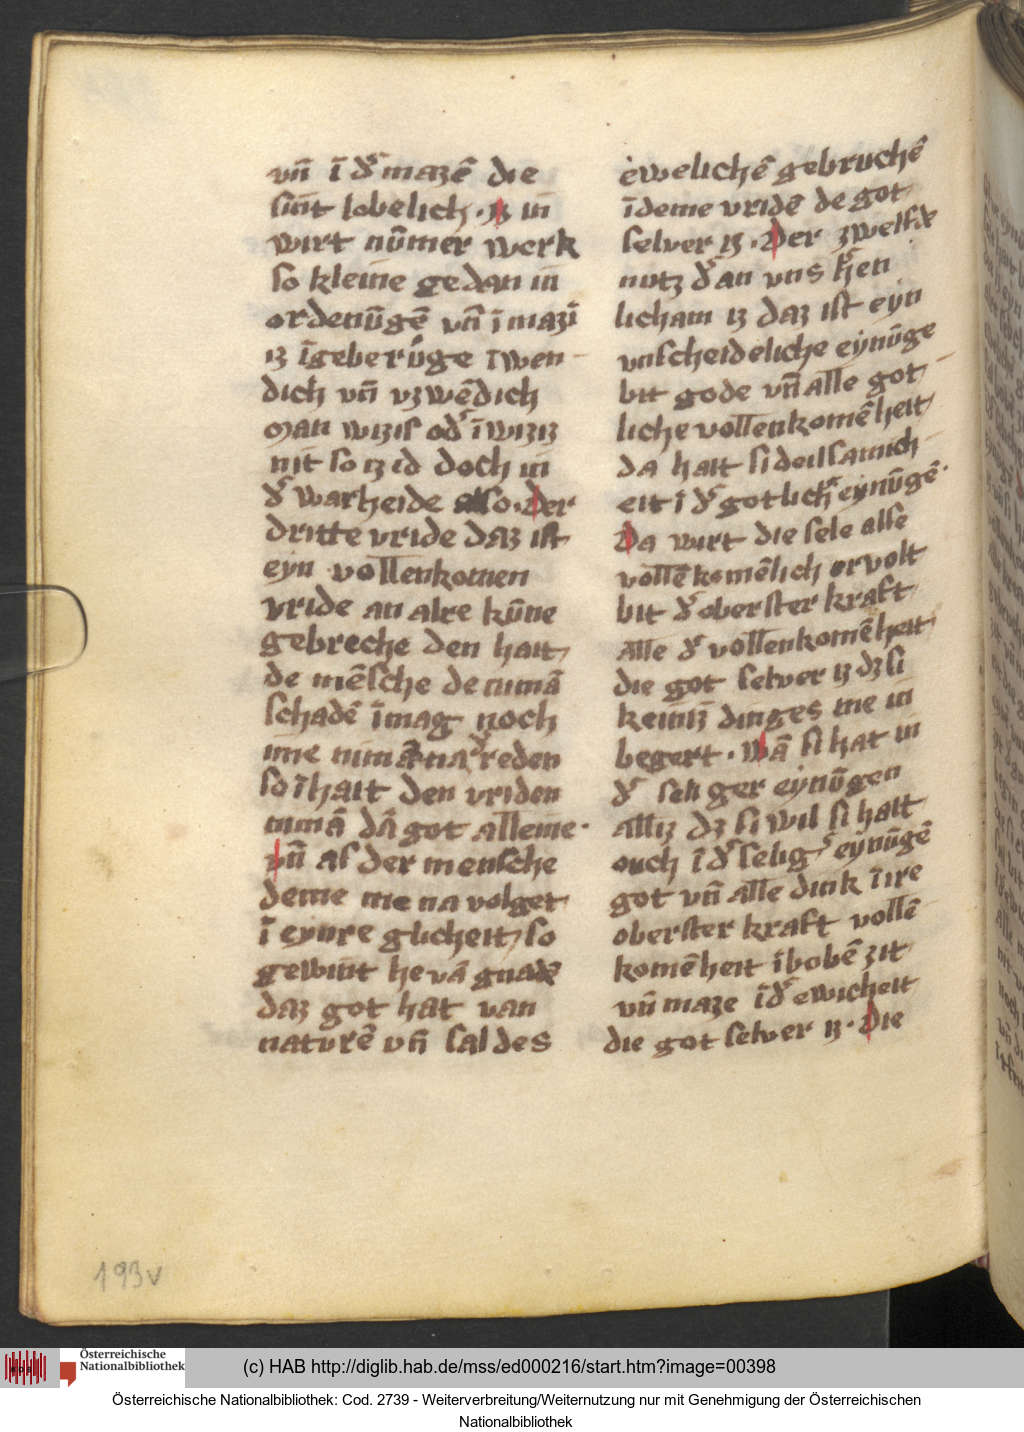 vn̄ ī dˀ mazē die
sint lobelich · iz in
wirt nūmer werk
so kleine gedan in
ordenūgē vn̄ ī mazī
iz īgeberūge īwen
dich vn̄ vzwēdich
man wizis odˀ īwiziz
nit so iz id doch in
dˀ warheide also · Der
dritte vride daz ist
eyn vollenkomen
vride an alre kūne
gebreche den hait
de mēsche de numā
schadē īmag noch
ime numā reden
so īhait den vriden
numā dā got alleine ·
vn̄ als der mensche
deme me na volget
ī eynre glicheit so
gewint he vā gnadē
daz got hat van
naturē vn̄ sal des
ewelichē gebruchē
īdeme vridē de got
selver iz · Der zwelfde
nutz dˀ an vns hˀen
licham iz daz ist eyn
vnscheideliche eynūge
bit gode vn̄ alle got
liche vollenkomēheit
da hait si
eit ī dˀ gotlichˀ eynūgē ·
Da wirt die sele alse
vollēkomēlich ervolt
bit dˀ oberster kraft
alle dˀ vollenkomēheit
die got selver iz dz si
keiniz dinges me in
begert · Wā si hat in
dˀ seliger eynūgen
alliz dz si wil si hait
ouch ī dˀ seligˀ eynūgē
got vn̄ alle dink ī ire
oberster kraft vollē
komēheit ībobē zit
vn̄ maze ī dˀ ewicheit
die got selver iz · Die
193v
Österreichische
Nationalbibliothek
(c) HAB http://diglib.hab.de/mss/ed000216/start.htm?image=00398
Österreichische Nationalbibliothek: Cod. 2739 - Weiterverbreitung/Weiternutzung nur mit Genehmigung der Österreichischen
Nationalbibliothek